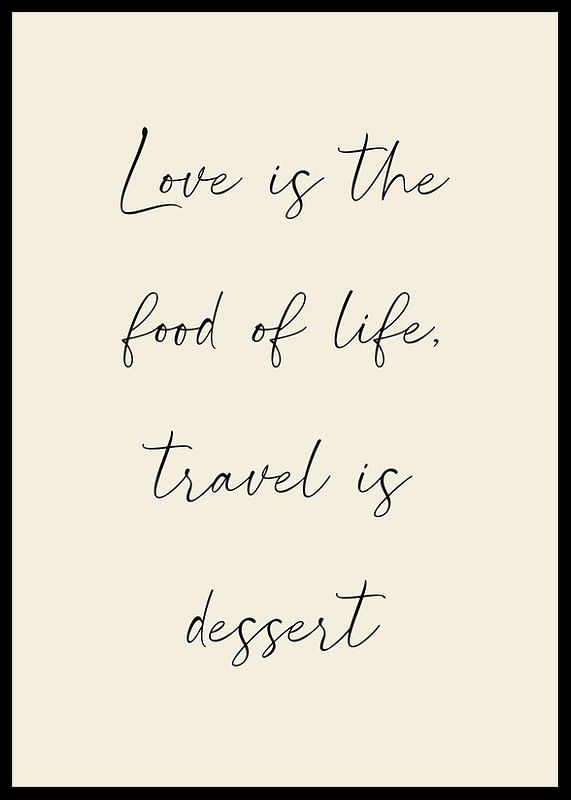 Love is the
food of life,
travel is
dessert